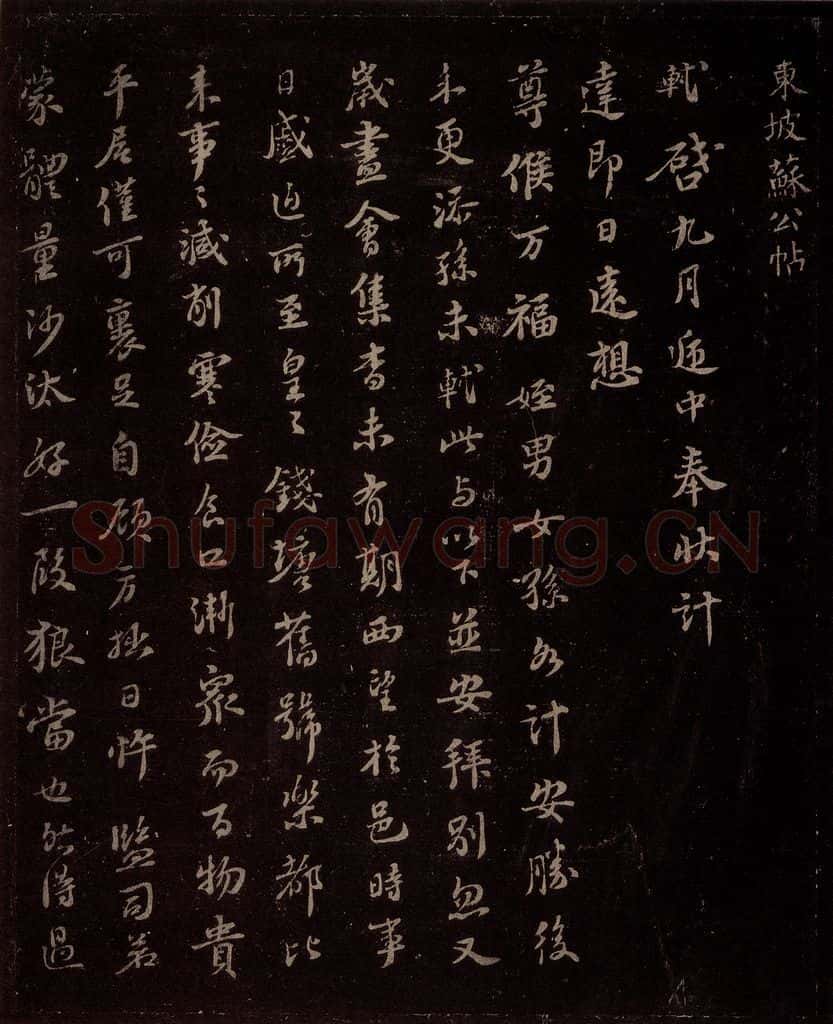 東坡蘇公帖
軾啓九月遞中奉狀計
達即日遠想
尊候万福姪男女孫各計安勝後
來更添孫未軾此与以下並安拜別忽又
歲盡會集杳未有期西望於邑時事
日蹙近所至皇〻錢塘舊號樂都比
來事〻減削寒儉食口漸〻衆而百物貴
平居僅可裹足自顧方拙日忤監司若
蒙體量沙汰好一段狼當也然得過
Shufawang.CN